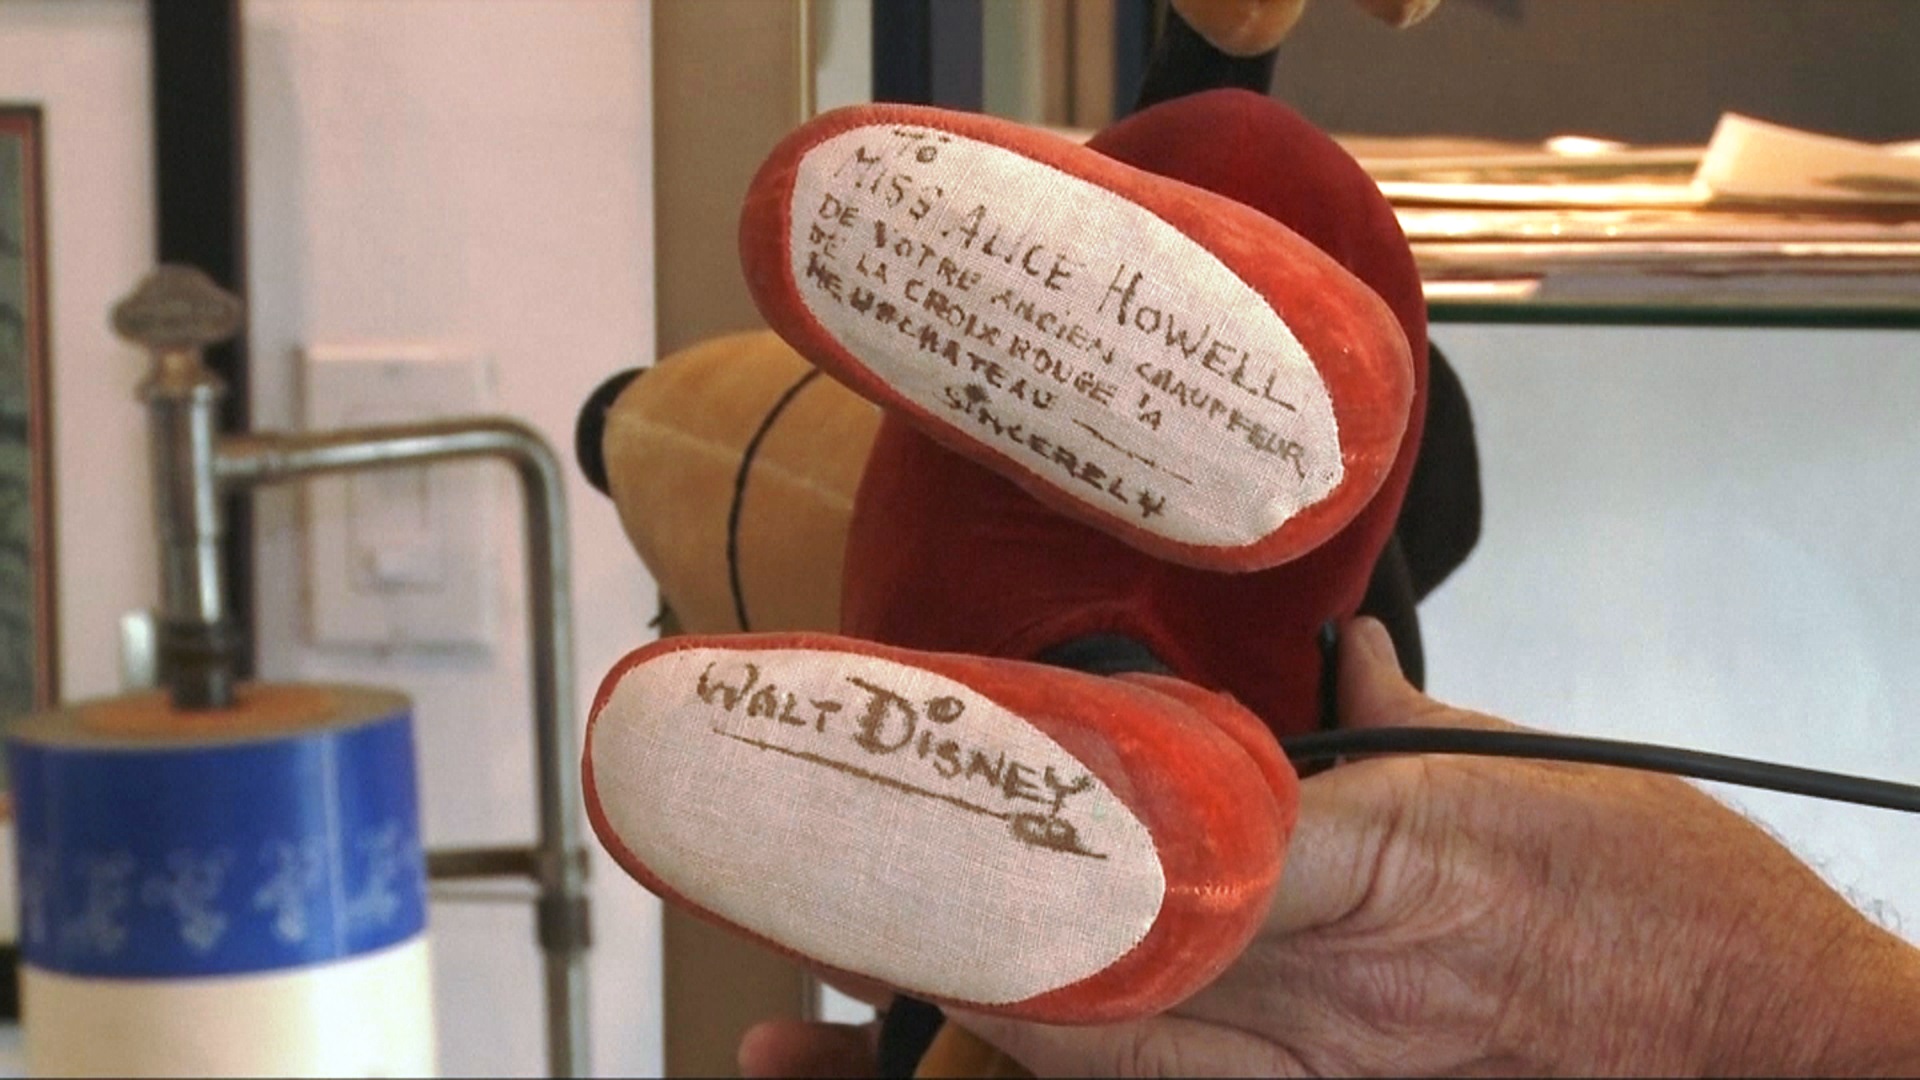 TO
MISS ALICE HOWELL
DE VOTRE ANCIEN CHAUFFEUR
DE LA CROIX ROUGE
NEUFCHATEAU
SINCERELY
WALT DISNEY